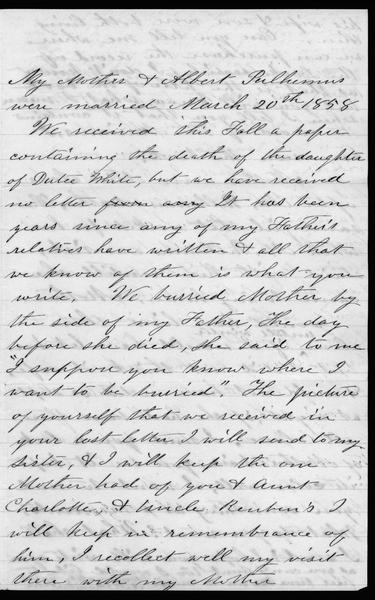 My Mother & Albert Pelhemus
were married March 20th 1858
We received this Fall a paper
containing the death of the daughter
of Dutee White, but we have received
no letter from any It has been
years since any of my Father's
relatives have written & all that
we know of them is what you
write. We burried Mother by
the side of my Father, The day
before she died, she said to me
"I suppose you know where I
want to be burried". The picture
of yourself that we received in
your last letter I will send to my
sister, & I will keep the one
Mother had of you & Aunt
Charlotte, & Uncle Reuben's I
will keep in remembrance of
him, I recollect well my visit
there with my Mother